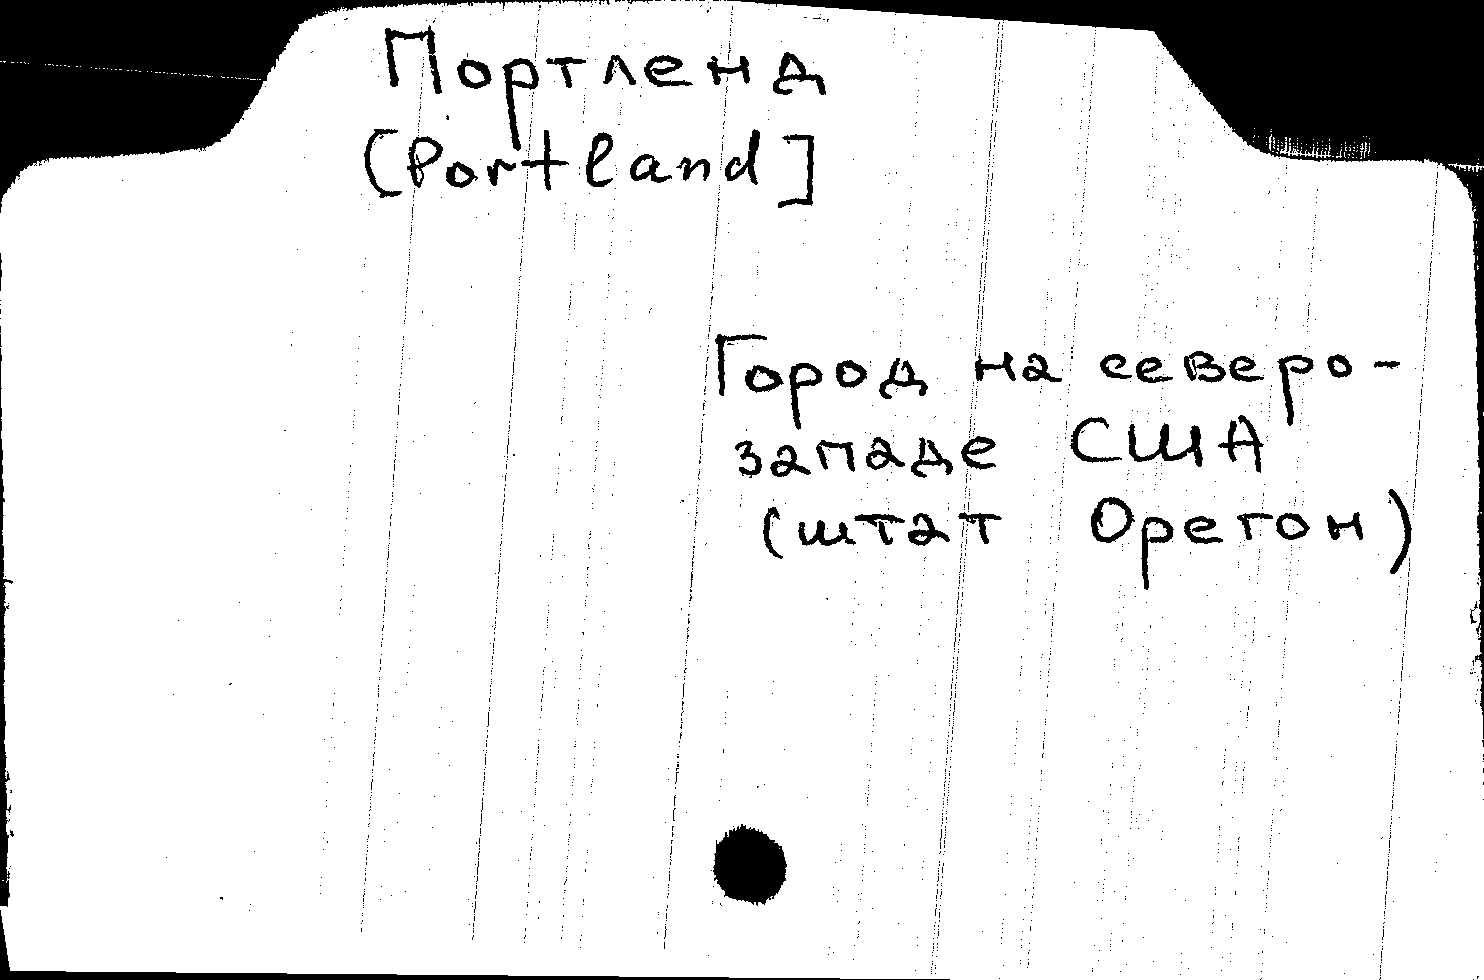 Портленд
[Portland]
Город на северо-
западе США
(штат Орегон)